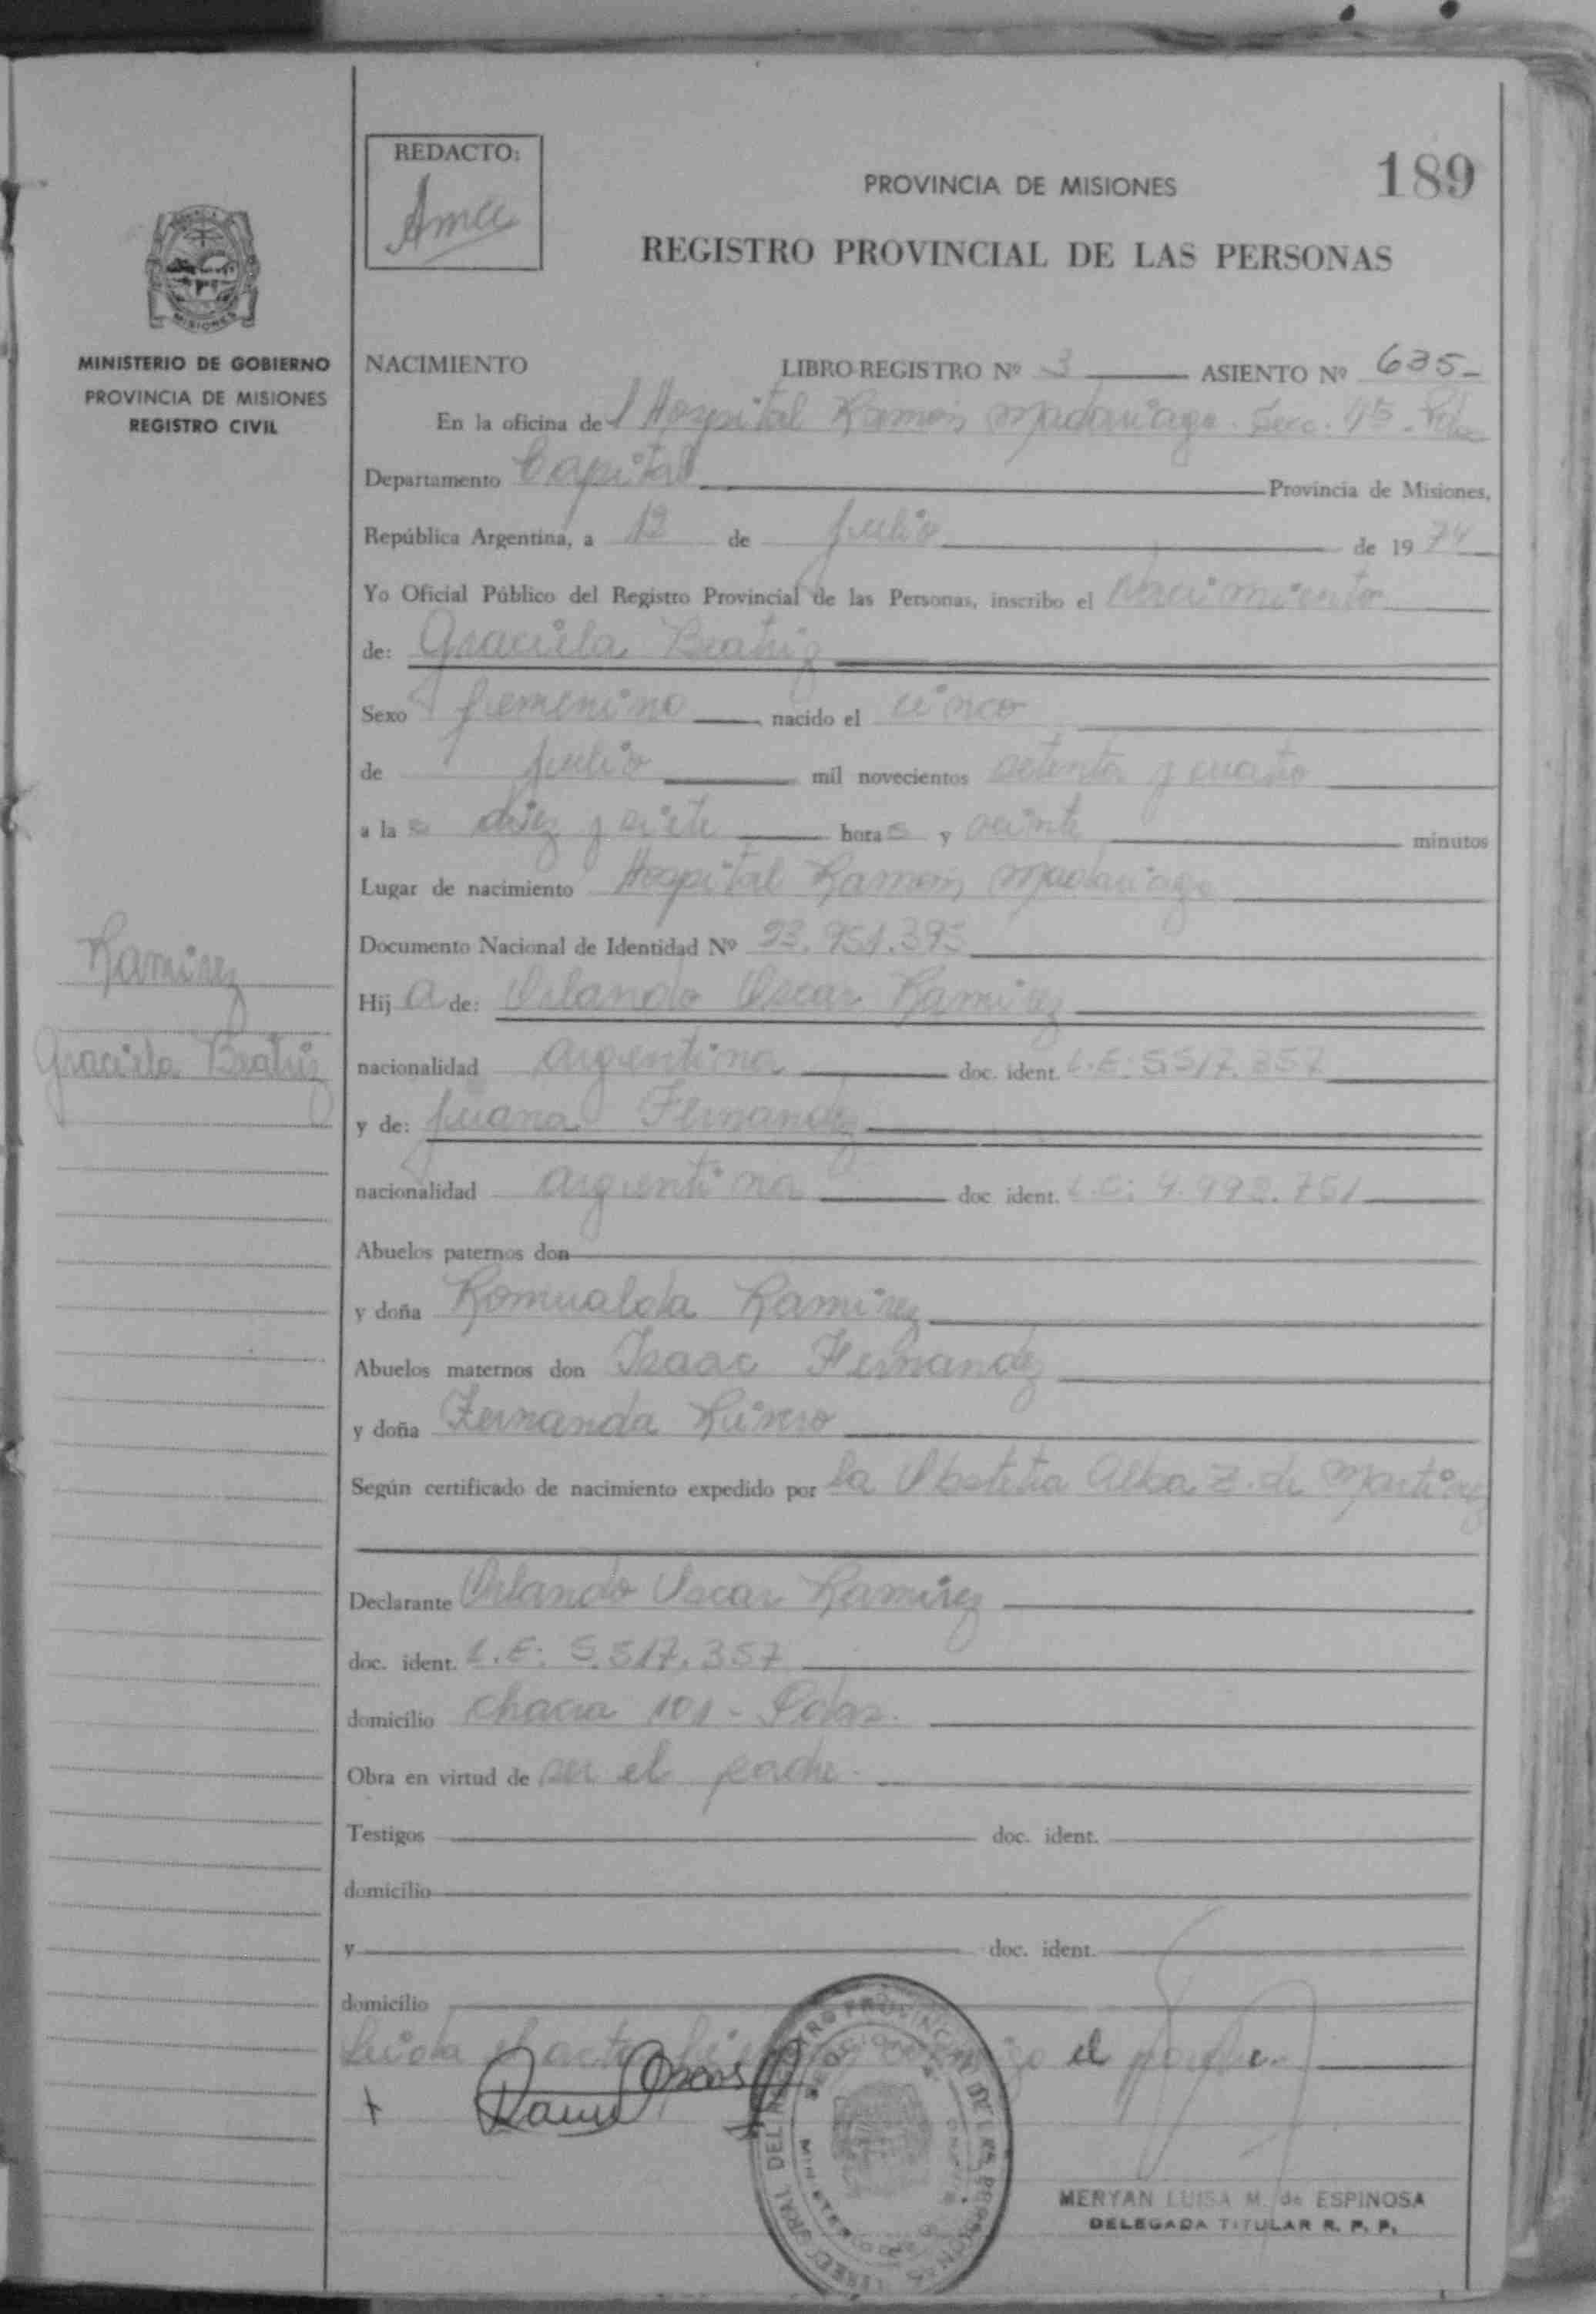 REDACTO:
Ama
PROVINCIA DE MISIONES
189
REGISTRO PROVINCIAL DE LAS PERSONAS
MISIONES
MINISTERIO DE GOBIERNO
PROVINCIA DE MISIONES
REGISTRO CIVIL
NACIMIENTO LIBRO REGISTRO Nº 3 ASIENTO Nº 635-
En la oficina del Hospital Ramón Madariaga. Secc. 4ta
Departamento Capital Provincia de Misiones,
República Argentina, a 12 de julio de 1974
Yo Oficial Público del Registro Provincial de las Personas, inscribo el Nacimiento
de: Graciela Beatriz
Sexo femenino nacido el cinco
de julio mil novecientos setenta y cuatro
a las diez y siete horas y veinte minutos
Lugar de nacimiento Hospital Ramón Madariaga
Documento Nacional de Identidad Nº 23.951.395
Ramirez
Hija de: Orlando Oscar Ramirez
Graciela Beatriz
nacionalidad argentina doc. ident. L.E: 5.517.357
y de: Juana Fernandez
nacionalidad argentina doc ident. L.C: 4.992.751
Abuelos paternos don
y doña Romualda Ramirez
Abuelos maternos don Isaac Fernandez
y doña Fernanda
Según certificado de nacimiento expedido por la Obstetra Alba Z. de Martinez
Declarante Orlando Oscar Ramirez
doc. ident. L.E: 5.517.357
domicilio chacra 101 - Pdas.
Obra en virtud de ser el padre.
Testigos doc. ident.
domicilio
y doc. ident.
domicilio
Leida el acta conmigo el padre.
MERYAN LUISA M. de ESPINOSA
DELEGADA TITULAR R. P. P.